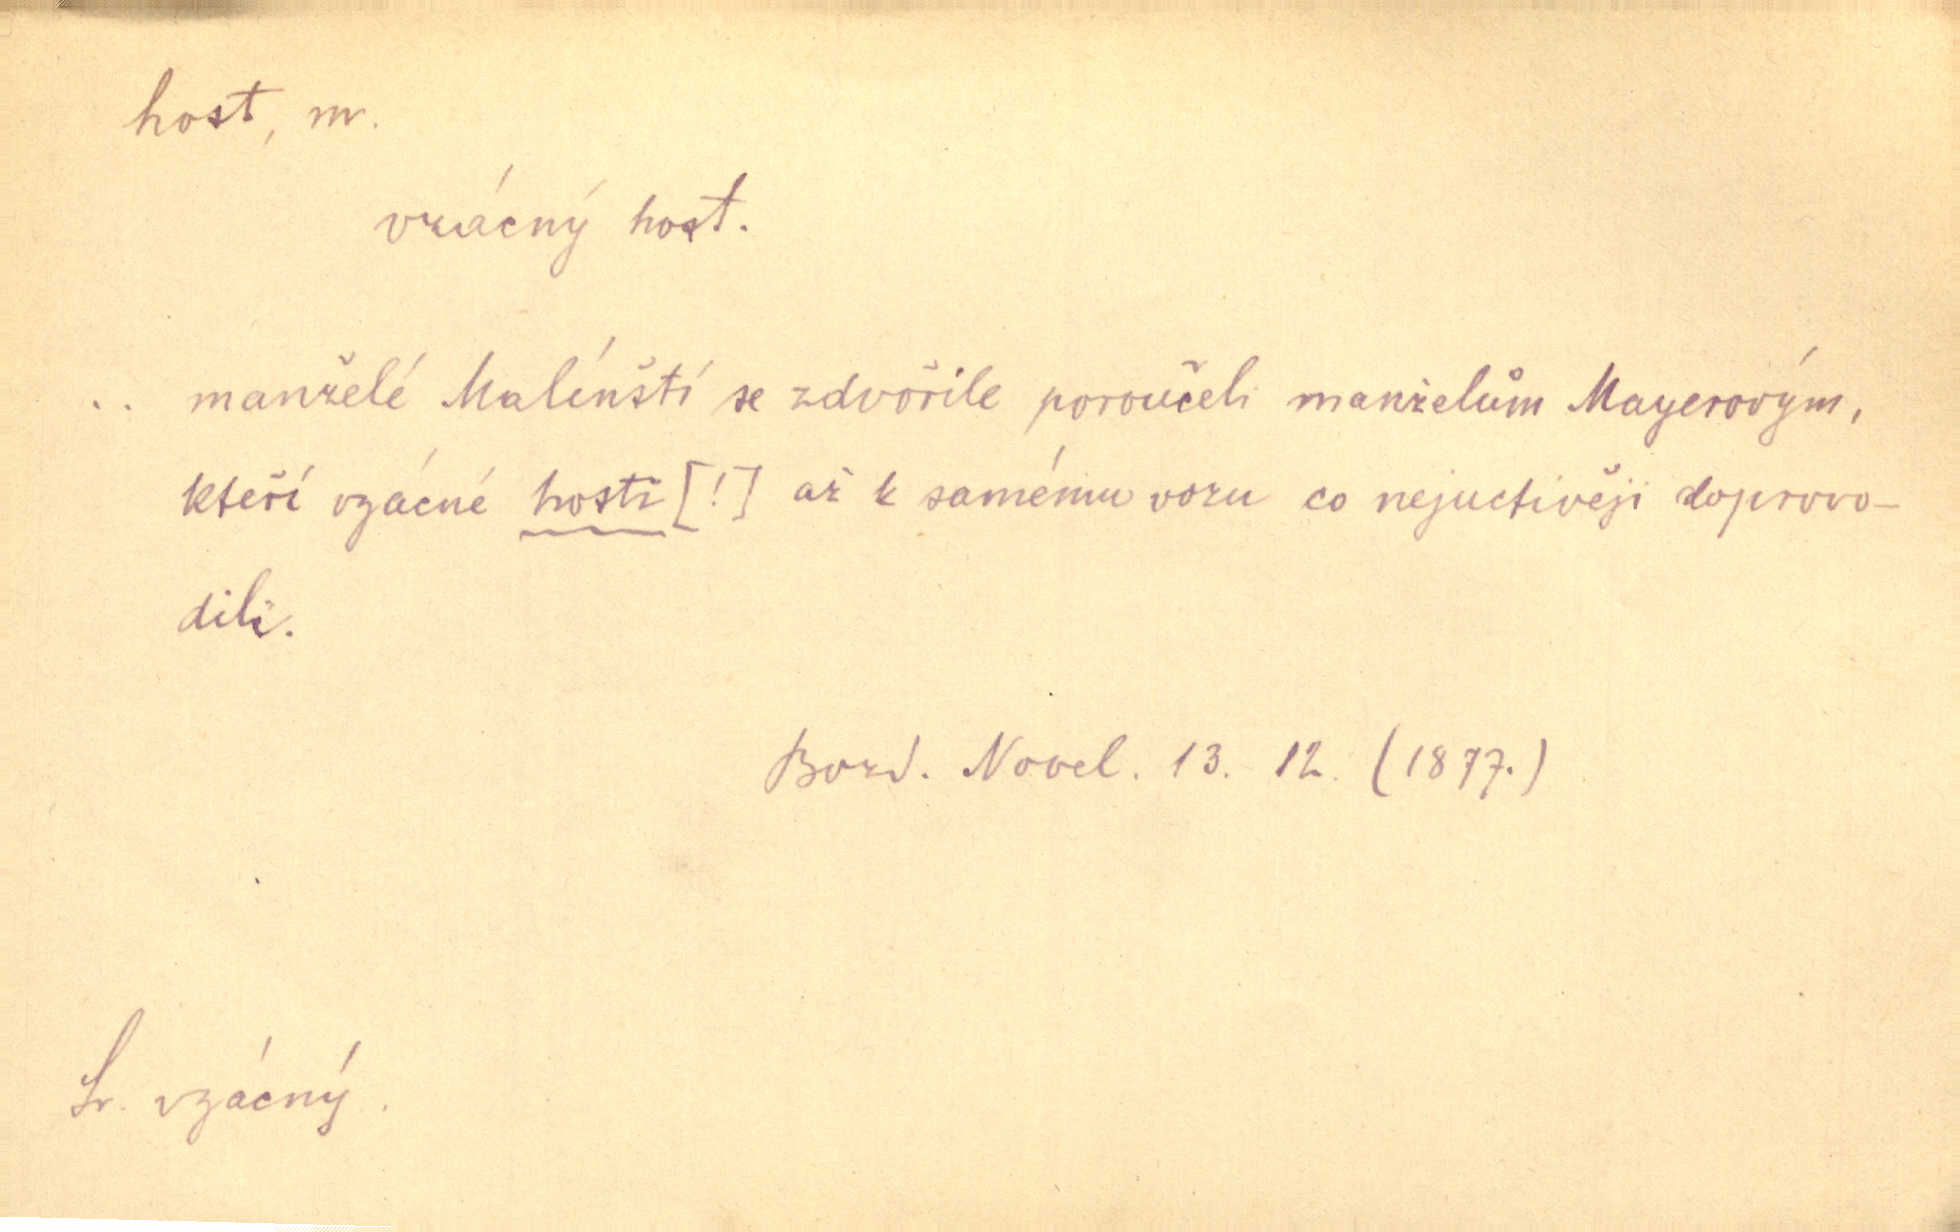 host, m.
vzácný host.
.. manželé Malínští se zdvořile poroučeli manželům Mayerovým,
kteří vzácné hosti [!] až k samému vozu co nejuctivěji doprovo-
dili.
Bozd. Novel. 13. 12. (1877.)
Sr. vzácný.